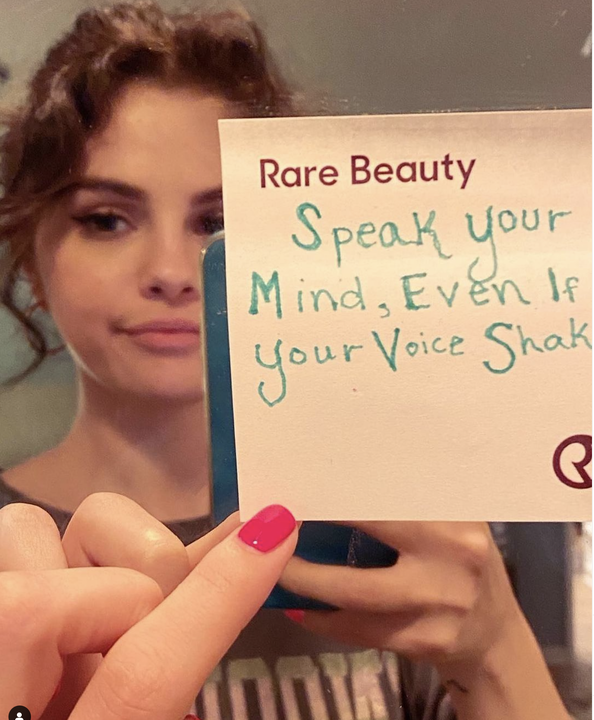 Rare Beauty
Speak your
Mind, Even If
your Voice Shak